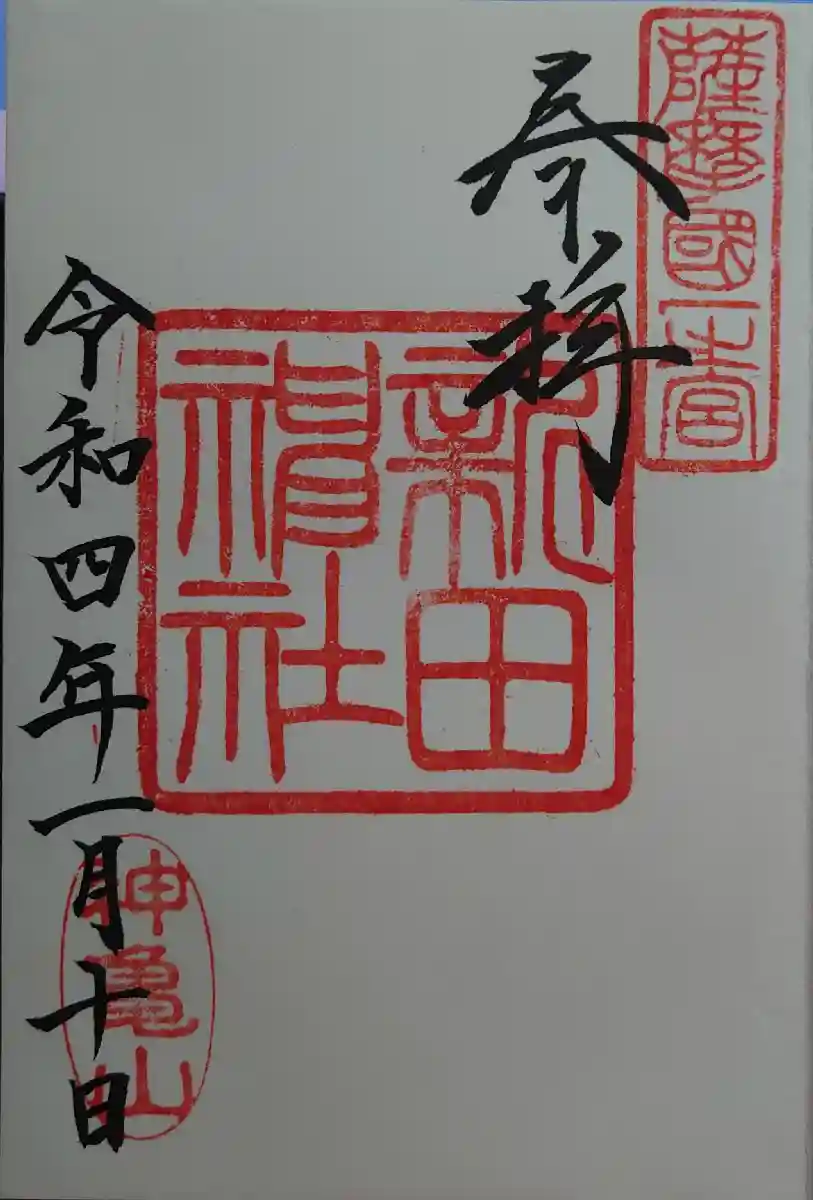 薩摩國一之宮
奉拝
新田神社
令和四年一月十日
神亀山